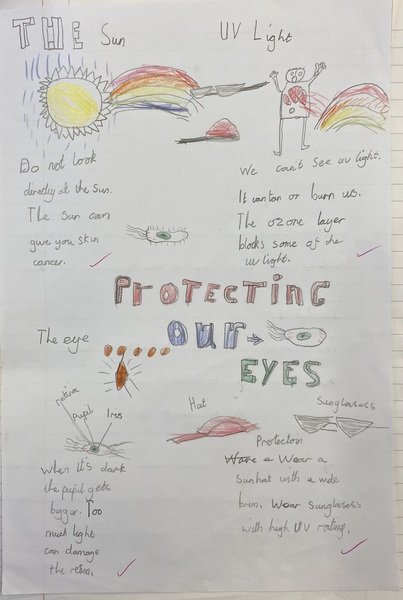 THE Sun
Do not look
directly at the Sun.
The Sun can
give you skin
cancer.
UV Light
We can't see uv light.
It can tan or burn us.
The ozone layer
blocks some of the
uv light.
PROTECTING
OUR
EYES
The eye
retina
pupil
Iris
When it's dark
the pupil gets
bigger. Too
much light
can damage
the retina.
Hat
Sunglasess
Protection
Ware a Wear a
sunhat with a wide
brim. Wear Sunglasess
with high UV rating.